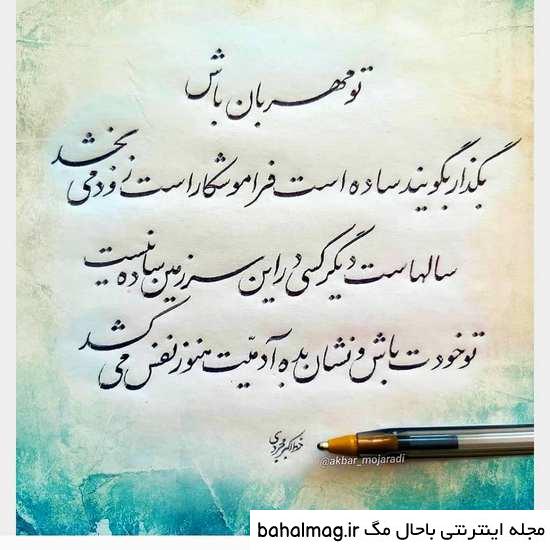 تو مهربان باش
بگذار بگویند ساده است فراموشکار است زود می بخشد
سالهاست دیگر کسی در این سرزمین ساده نیست
تو خودت باش و نشان بده آدمیّت هنوز نفس می کشد
خط اکبر مجردی
@akbar_mojaradi
مجله اینترنتی باحال مگ bahalmag.ir